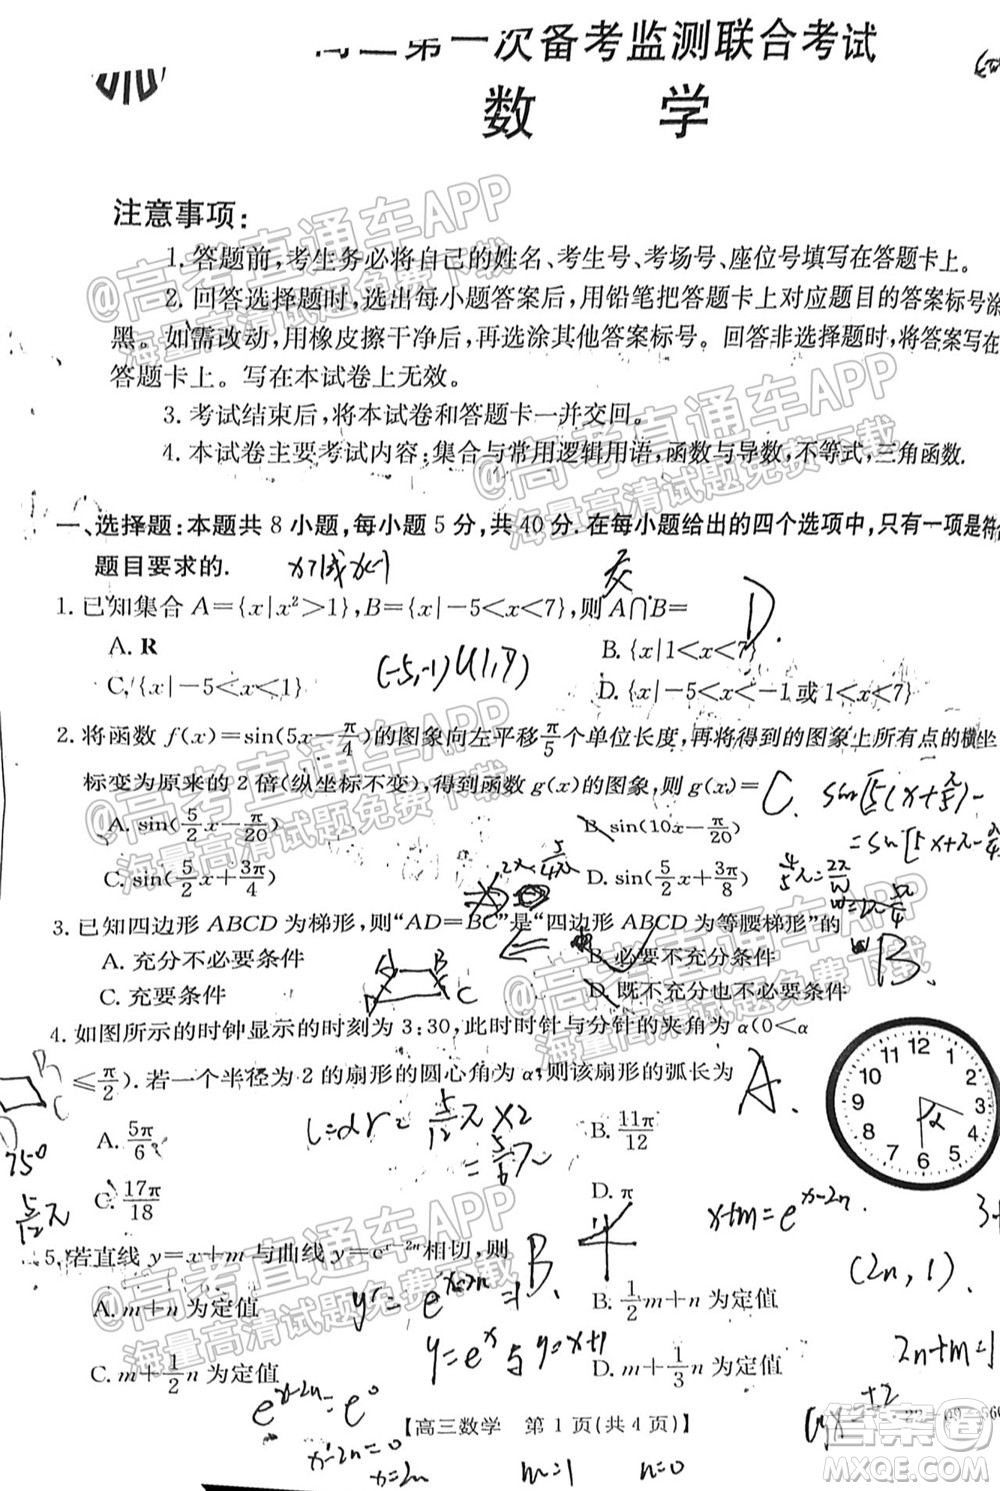 高三第一次备考监测联合考试
数 学
注意事项：
1. 答题前，考生务必将自己的姓名、考生号、考场号、座位号填写在答题卡上。
2. 回答选择题时，选出每小题答案后，用铅笔把答题卡上对应题目的答案标号涂
黑。如需改动，用橡皮擦干净后，再选涂其他答案标号。回答非选择题时，将答案写在
答题卡上。写在本试卷上无效。
3. 考试结束后，将本试卷和答题卡一并交回。
4. 本试卷主要考试内容：集合与常用逻辑用语，函数与导数，不等式，三角函数.
一、选择题：本题共 8 小题，每小题 5 分，共 40 分. 在每小题给出的四个选项中，只有一项是符
题目要求的.
x>1或x<-1
交
1. 已知集合 A={x|x²>1}，B={x|-5<x<7}，则 A∩B= D.
A. R B. {x|1<x<7}
C. {x|-5<x<1} D. {x|-5<x<-1 或 1<x<7}
(-5,-1)U(1,7)
2. 将函数 f(x)=sin(5x-π/4)的图象向左平移π/5个单位长度，再将得到的图象上所有点的横坐
标变为原来的 2 倍（纵坐标不变），得到函数 g(x)的图象，则 g(x)= C
A. sin(5/2 x-π/20) B. sin(10x-π/20)
C. sin(5/2 x+3π/4) D. sin(5/2 x+3π/8)
sin[5(x+π/5)-
=sin[5x+π-π/4
3. 已知四边形 ABCD 为梯形，则“AD=BC”是“四边形 ABCD 为等腰梯形”的 B.
A. 充分不必要条件 B. 必要不充分条件
C. 充要条件 D. 既不充分也不必要条件
A B
D C
4. 如图所示的时钟显示的时刻为 3:30，此时时针与分针的夹角为 α(0<α
≤π/2). 若一个半径为 2 的扇形的圆心角为 α，则该扇形的弧长为 A.
A. 5π/6 B. 11π/12
C. 17π/18 D. π
l=αr=5/12π×2
=5/6π
75°
5/12π
11 12 1
10 2
9
8 4
7 6 5
α
5. 若直线 y=x+m 与曲线 y=eˣ⁻²ⁿ相切，则 B.
A. m+n 为定值 B. 1/2 m+n 为定值
C. m+1/2 n 为定值 D. m+1/3 n 为定值
x+m=eˣ⁻²ⁿ
(2n,1).
y'=eˣ⁻²ⁿ=1
y=eˣ与y=x+1
2n+m=1
eˣ⁻²ⁿ=e⁰
x-2n=0
x=2n
m=1 n=0
【高三数学 第 1 页（共 4 页）】
@高考直通车APP
海量高清试题免费下载
@高考直通车APP
海量高清试题免费下载
@高考直通车APP
海量高清试题免费下载
@高考直通车APP
海量高清试题免费下载
@高考直通车APP
海量高清试题免费下载
答案圈
MXQE.COM